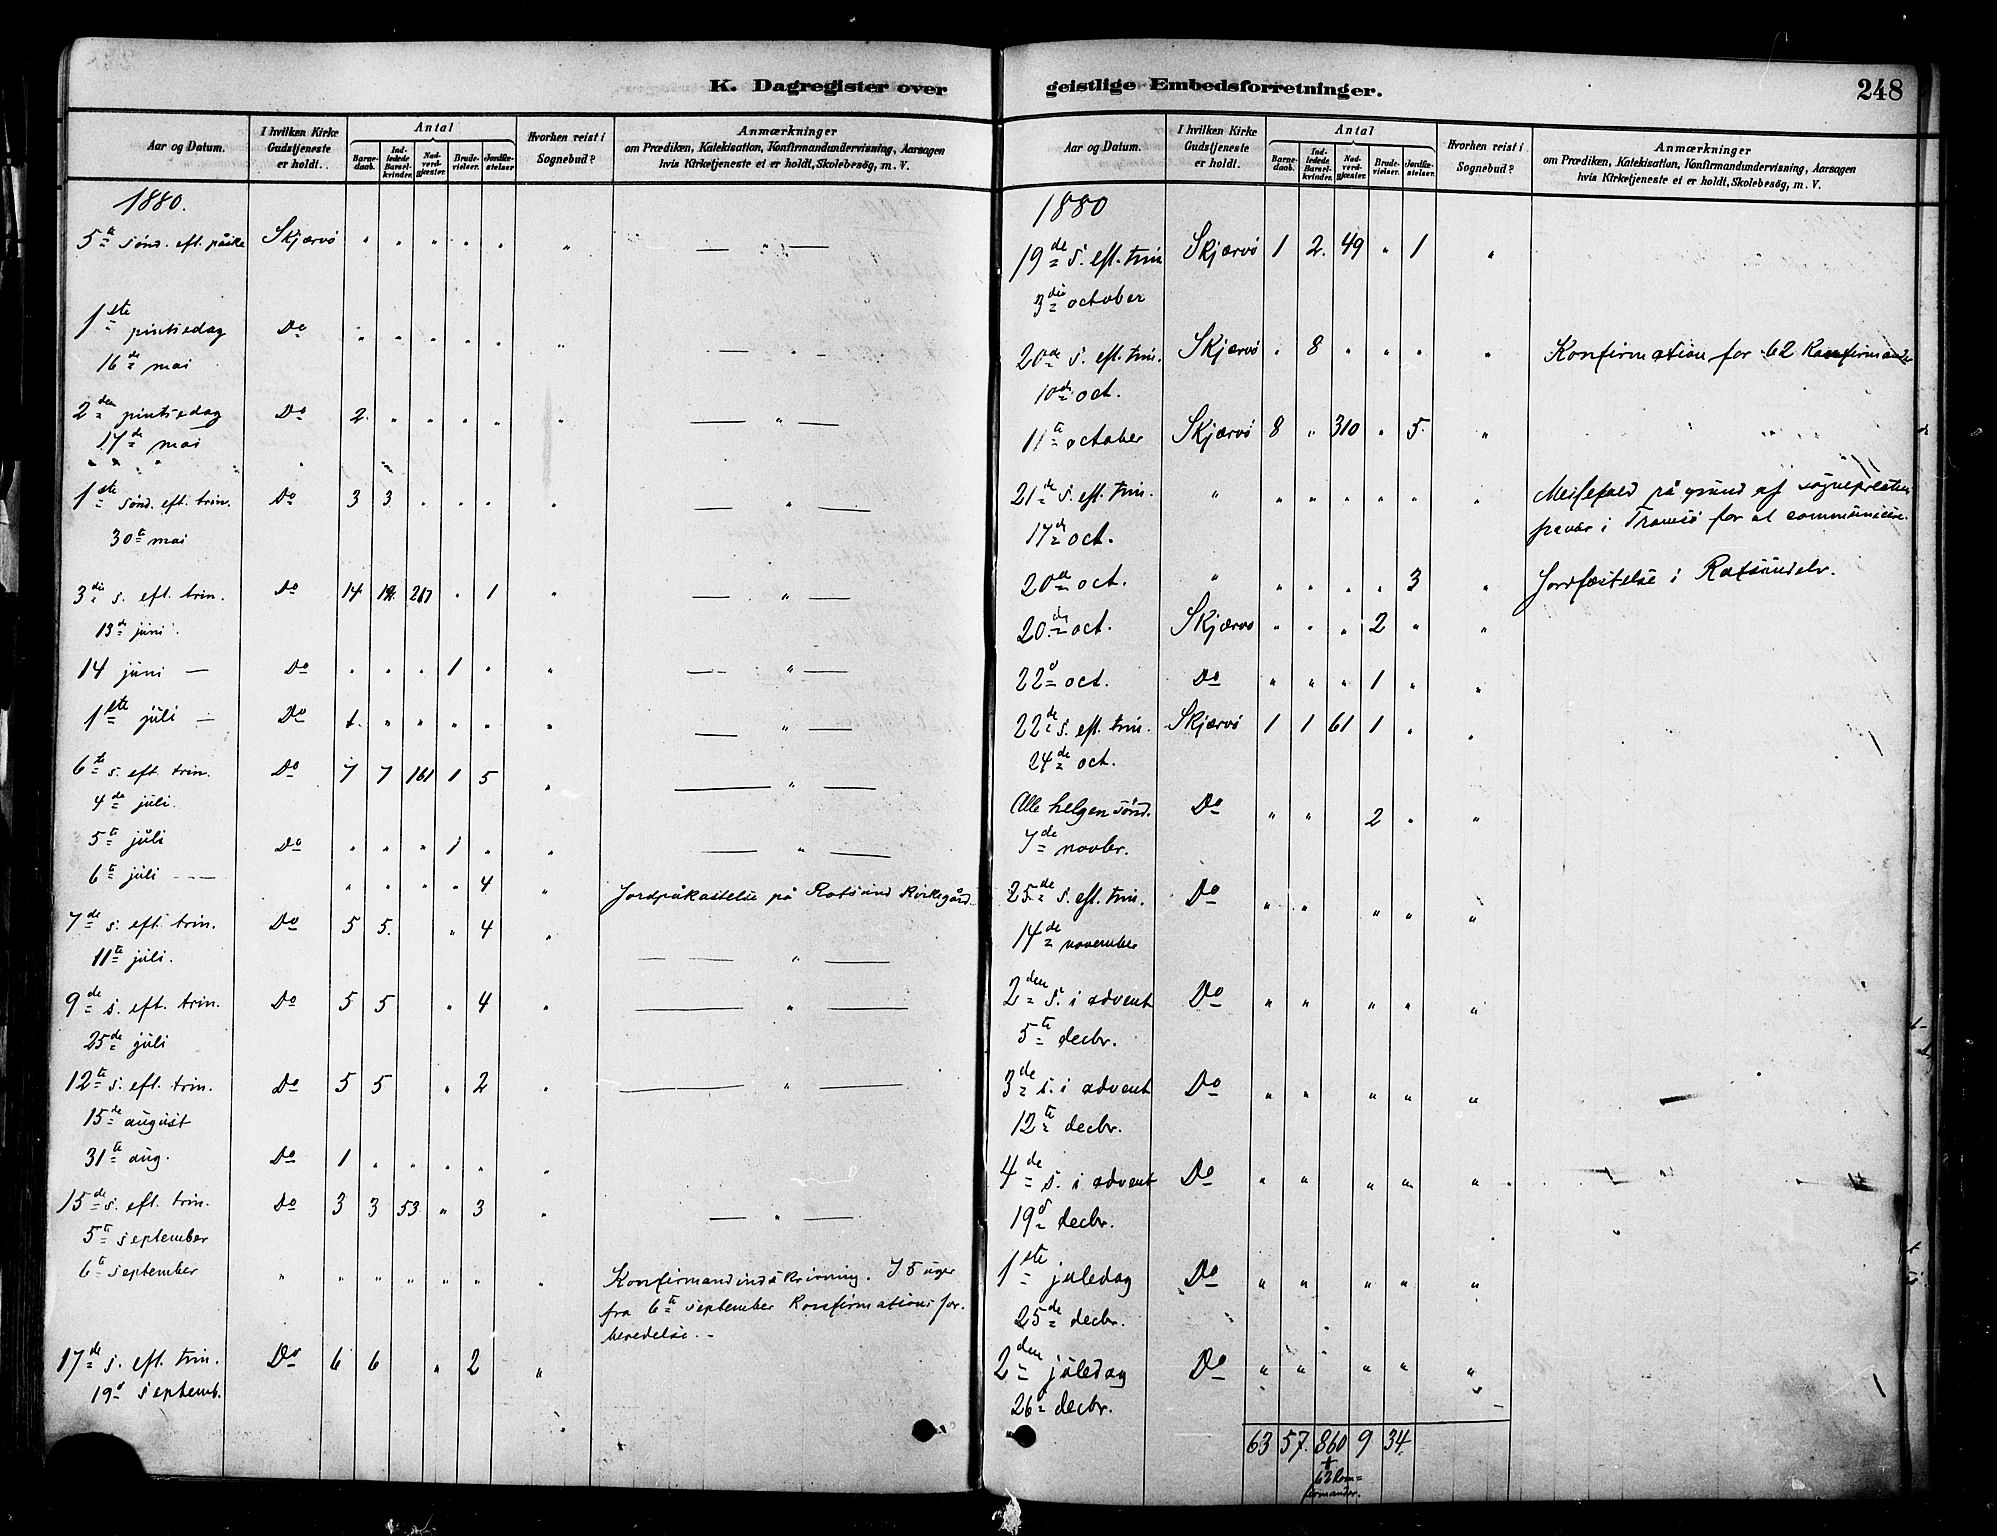 K. Dagregister over
Aar og Datum. I hvilken Kirke Gudstjeneste er holdt. Antal Barnedaab. Indledede Barselkvinder. Nadverdgjæster. Brudevielser. Jordfæstelser Hvorhen reist i Sognebud? Anmærkninger om Prædiken, Katekisation, Konfirmandundervisning, Aarsagen hvis Kirketjeneste ei er holdt, Skolebesög, m. V.
1880.
5te sönd. eft. påske Skjærvö " " " " " " — " —
1ste pintsedag Do " " " " " " — " —
16de mai
2den pintsedag Do 2. " " " " " — " —
17de mai
1ste sönd. eft. trin. Do 3 3 " " " " — " —
30te mai
3die s. eft. trin. Do 14 " 1 " — " —
13de juni.
14 juni — Do " " " 1 " " — " —
1ste juli — Do " " " " " — " —
6te s. eft. trin. Do 7 7 161 1 5 " — " —
4de juli.
5te juli Do " " " 1 " " — " —
6te juli — " " " " 4 " Jordpåkastelse på Rotsund Kirkegård
7de s. eft. trin. Do 5 5. " 4 " — " —
11te juli.
9de s. eft. trin. Do 5 5 " 4 " — " —
25de juli
12te s. eft. trin. Do 5 5 " 2 " — " —
15de august
31te aug. Do 1 " " " " "
15de s. eft. trin. Do 3 3 53 " 3 " — " —
5te september
6te september " " " " " " " Konfirmandindskrivning. I 5 uger
fra 6te september Konfirmationsfor-
beredelse. –
17de s. eft. trin. Do 6 6 " 2 "
19d septemb.
geistlige Embedsforretninger. 248
Aar og Datum. I hvilken Kirke Gudstjeneste er holdt. Antal Barnedaab. Indledede Barselkvinder. Nadverdgjæster. Brudevielser. Jordfæstelser. Hvorhen reist i Sognebud? Anmærkninger om Prædiken, Katekisation, Konfirmandundervisning, Aarsagen hvis Kirketjeneste ei er holdt, Skolebesög, m. V.
1880
19de s. eft. trin Skjærvö 1 2. 49 " 1 "
3die october
20de s. eft. trin. Skjærvö " 8 " " " " Konfirmation for 62 Konfirmander
10de oct.
11te october Skjærvö 8 " 310 " 5. "
21de s. eft. trin. " " " " " " " Messefald på grund af sognepresten
17de oct. i Tromsö for at communicere.
20de oct. " " " " " 3 " Jordfæstelse i Rotsundelv.
20de oct. Skjærvö " " " 2 " "
22d oct. Do " " " 1 " "
22de s. eft. trin. Skjærvö 1 1 61 1 " "
24de oct.
Alle helgen sönd. Do " " 2 " "
7de novbr.
25de s. eft. trin. Do " " " " "
14de november
2den s. i advent Do " " " " "
5te decbr.
3de s. i advent Do " " " " "
12te decbr.
4de s. i advent Do " " " " "
19d decbr.
1ste juledag Do " " " " "
25de decbr.
2den juledag Do " " " " "
26d decbr.
63 57. 860 9 34.
+
62 Kon=
firmander.